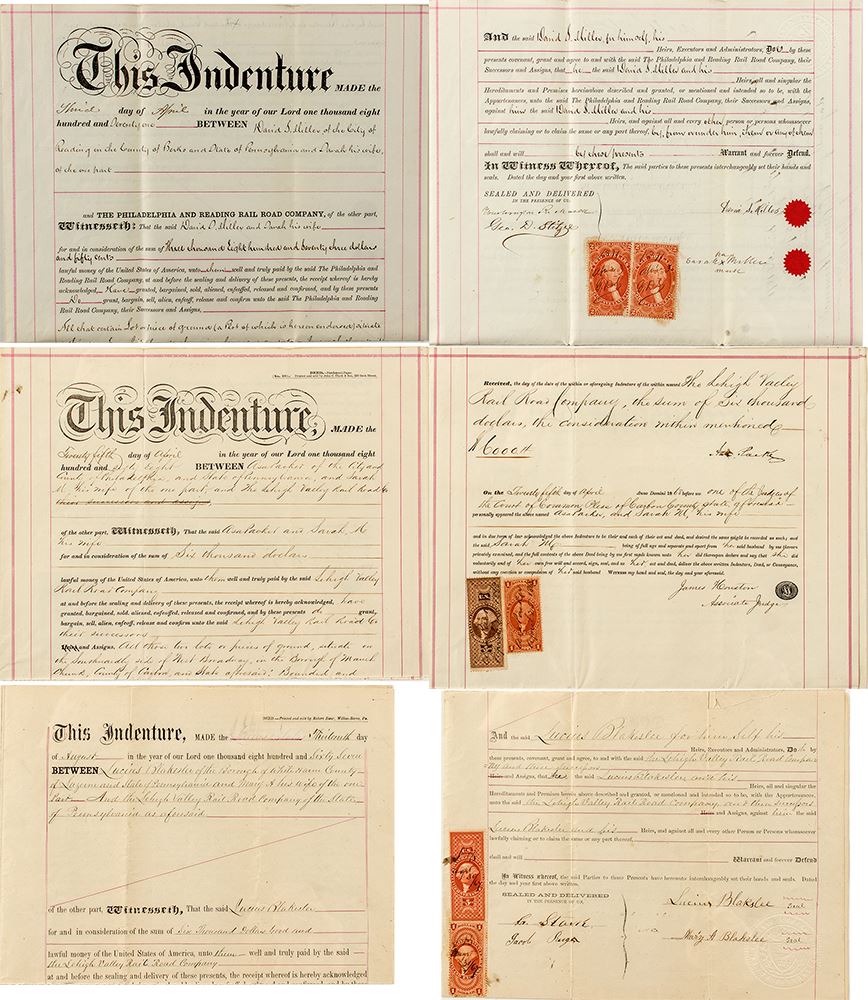 This Indenture MADE the
Third day of April in the year of our Lord one thousand eight
hundred and Seventy one BETWEEN David S. Miller of the City of
Reading in the County of Berks and State of Pennsylvania and Sarah his wife,
of the one part
and THE PHILADELPHIA AND READING RAIL ROAD COMPANY, of the other part,
Witnesseth: That the said David S. Miller and Sarah his wife
for and in consideration of the sum of Three thousand Eight hundred and Seventy three dollars
and fifty cents
lawful money of the United States of America, unto them well and truly paid by the said The Philadelphia and
Reading Rail Road Company, at and before the sealing and delivery of these presents, the receipt whereof is hereby
acknowledged, Have granted, bargained, sold, aliened, enfeoffed, released and confirmed, and by these presents
Do grant, bargain, sell, alien, enfeoff, release and confirm unto the said The Philadelphia and Reading
Rail Road Company, their Successors and Assigns,
All that certain Lot or piece of ground (a Plot of which is hereon endorsed) situate
And the said David S. Miller, for himself, his
Heirs, Executors and Administrators, Do by these
presents covenant, grant and agree to and with the said The Philadelphia and Reading Rail Road Company, their
Successors and Assigns, that he the said David S. Miller and his
Heirs, all and singular the
Hereditaments and Premises hereinabove described and granted, or mentioned and intended so to be, with the
Appurtenances, unto the said The Philadelphia and Reading Rail Road Company, their Successors and Assigns,
against him the said David S. Miller and his
Heirs, and against all and every other person or persons whomsoever
lawfully claiming or to claim the same or any part thereof, by, from or under him, them or any of them
shall and will by these presents Warrant and forever Defend.
In Witness Whereof, The said parties to these presents have interchangeably set their hands and
seals. Dated the day and year first above written.
SEALED AND DELIVERED
IN THE PRESENCE OF US.
David S. Miller
Geo. D. Stitzel
her
Sarah x Miller
mark
DEED.
This Indenture, MADE the
Twenty fifth day of April in the year of our Lord one thousand eight
hundred and Sixty Eight BETWEEN Asa Packer of the City and
County of Philadelphia, and State of Pennsylvania, and Sarah
M. his wife of the one part, and The Lehigh Valley Rail Road Co
their successors and assigns
of the other part, Witnesseth, That the said Asa Packer and Sarah M
his wife
for and in consideration of the sum of Six thousand dollars
lawful money of the United States of America, unto them well and truly paid by the said Lehigh Valley
Rail Road Company
at and before the sealing and delivery of these presents, the receipt whereof is hereby acknowledged, have
granted, bargained, sold, aliened, enfeoffed, released and confirmed, and by these presents do grant,
bargain, sell, alien, enfeoff, release and confirm unto the said Lehigh Valley Rail Road Co
their successors
Heirs and Assigns. All those two lots or pieces of ground, situate on
the southwardly side of West Broadway, in the Borough of Mauch
Chunk, County of Carbon, and State aforesaid: Bounded and
Received, the day of the date of the within or aforegoing Indenture of the within named The Lehigh Valley
Rail Road Company, the sum of Six thousand
dollars, the consideration within mentioned
$6000
Asa Packer
On the Twenty fifth day of April Anno Domini 186 before me one of the Judges of
the Court of Common Pleas of Carbon County
personally appeared the above named Asa Packer, and Sarah M, his wife
and in due form of law acknowledged the above Indenture to be their and each of their act and deed, and desired the same might be recorded as such; and
the said Sarah M, being of full age and separate and apart from her said husband by me thereon
privately examined, and the full contents of the above Deed being by me first made known unto her did thereupon declare and say that she did
voluntarily and of her own free will and accord, sign, seal, and as her act and deed, deliver the above written Indenture, Deed, or Conveyance,
without any coercion or compulsion of her said husband. Witness my hand and seal, the day and year aforesaid.
James Houston
Associate Judge
DEED.—Printed and sold by Robert Baur, Wilkes-Barre, Pa.
This Indenture, MADE the Thirteenth day
of August in the year of our Lord one thousand eight hundred and Sixty Seven
BETWEEN Lucius Blakslee of the Borough of White Haven County
of Luzerne and State of Pennsylvania and Mary A his wife of the one
Part And the Lehigh Valley Rail Road Company of the State
of Pennsylvania as aforesaid
of the other part, Witnesseth, That the said Lucius Blakslee
for and in consideration of the sum of Six Thousand Dollars
lawful money of the United States of America, unto them well and truly paid by the said
the Lehigh Valley Rail Road Company
at and before the sealing and delivery of these presents, the receipt whereof is hereby acknowledged
And the said Lucius Blakslee for him self his
Heirs, Executors and Administrators, Do by
these presents, covenant, grant and agree, to and with the said the Lehigh Valley Rail Road Compa
ny and their
Heirs and Assigns, that he the said Lucius Blakslee and his
Heirs, all and singular the
Hereditaments and Premises herein above described and granted, or mentioned and intended so to be, with the Appurtenances,
unto the said the Lehigh Valley Rail Road Company and their
Heirs and Assigns, against him the said
Lucius Blakslee and his Heirs, and against all and every other Person or Persons whomsoever
lawfully claiming or to claim the same or any part thereof,
shall and will Warrant and forever Defend
In Witness whereof, the said Parties to these Presents have hereunto interchangeably set their hands and seals. Dated
the day and year first above written.
SEALED AND DELIVERED
IN THE PRESENCE OF US.
Lucius Blakslee seal
Mary A Blakslee seal
Jacob